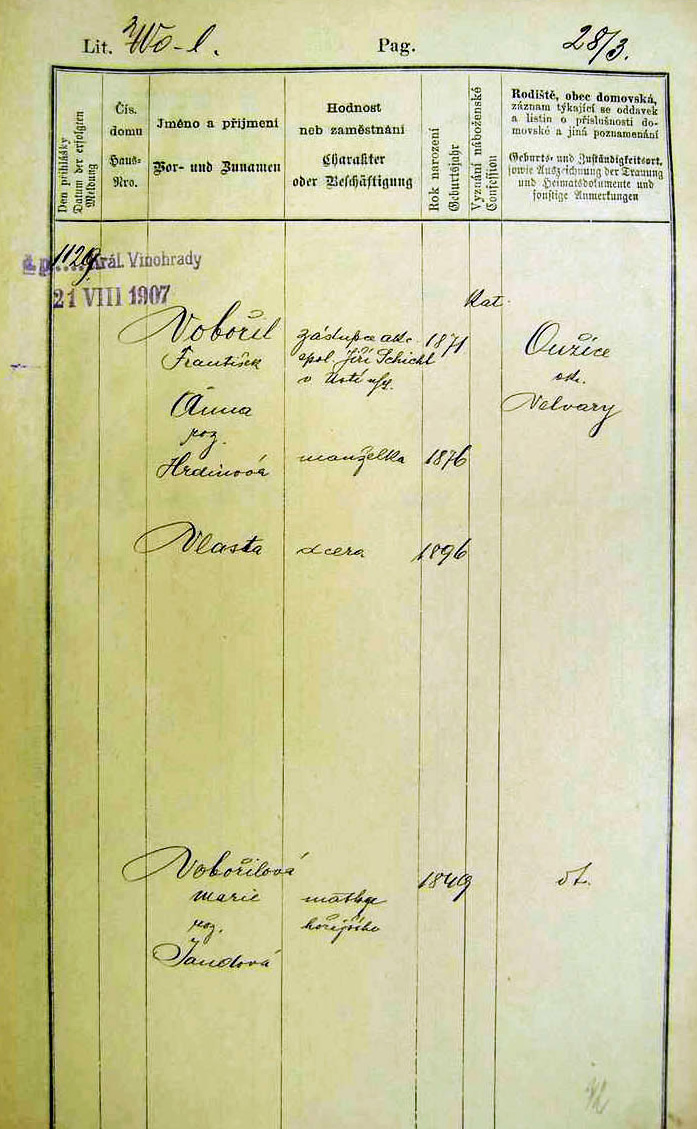 Lit. Wo-l. Pag. 28/3.
Den přihlášky
Datum der erfolgten
Meldung
Čís.
domu
Haus-
Nro.
Jméno a přijmení
Vor- und Zunamen
Hodnost
neb zaměstnání
Charakter
oder Beschäftigung
Rok narození
Geburtsjahr
Vyznání náboženské
Confession
Rodiště, obec domovská,
záznam týkající se oddavek
a listin o příslušnosti do-
movské a jiná poznamenání
Geburts- und Zuständigkeitsort,
sowie Auszeichnung der Trauung
und Heimatsdokumente und
sonstige Anmerkungen
č.p. 1129. Král. Vinohrady
21 VIII 1907
Kat.
Vobořil zástupce akc. 1871 Oužice
František spol. Jiří Schicht
v Ústí n/L. ok.
Anna Velvary
roz.
Hrdinová manželka 1876
Vlasta dcera 1896
Vobořilová
Marie matka 1849 dt.
roz. hořejšího
Jandová